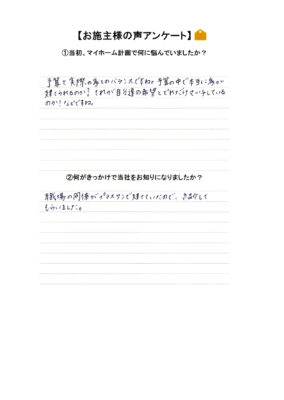 【お施主様の声アンケート】
①当初、マイホーム計画で何に悩んでいましたか？
予算と実際の家とのバランスですね。予算の中で本当に家が
建てられるのか？それが自分達の希望とどれだけマッチしている
のか？などですね。
②何がきっかけで当社をお知りになりましたか？
職場の同僚がプラスワンで建てていたので、紹介して
もらいました。